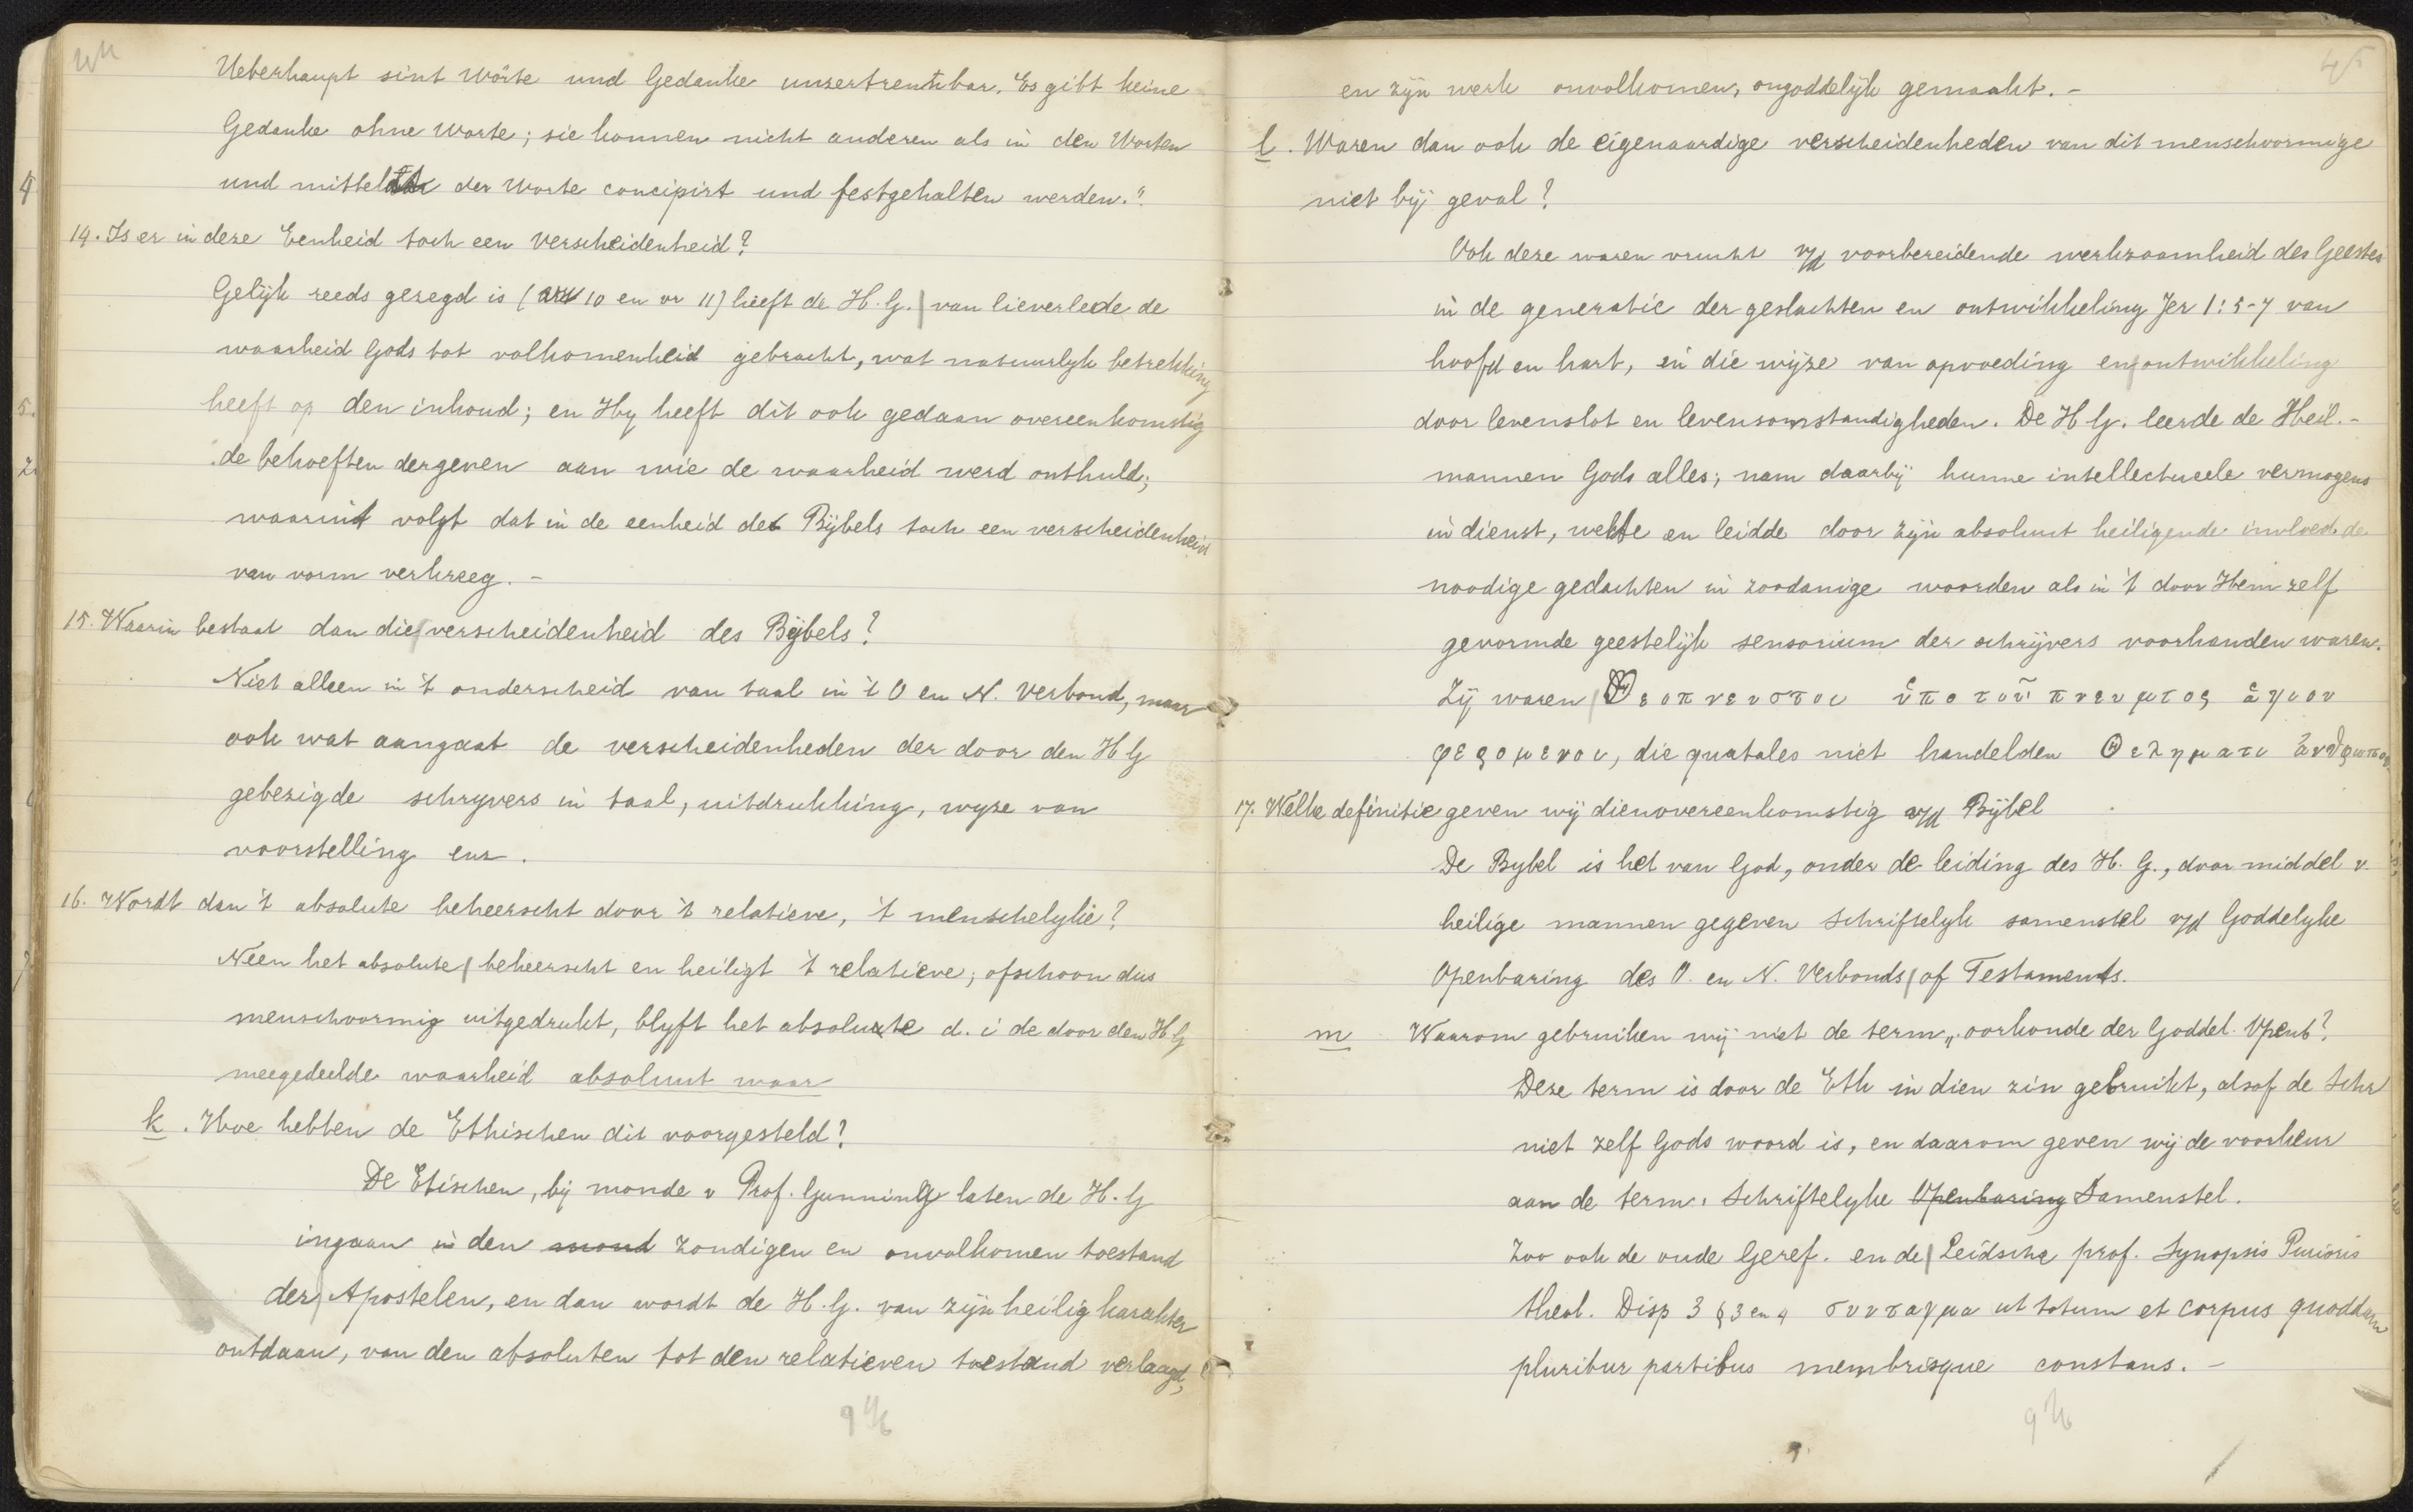 44
Ueberhaupt sint Wörte und Gedanke unzertrentbar. Es gibt keine
Gedanke ohne Worte; sie konnen nicht anderen als in den Worten
und mittelst der Worte concipirt und festgehalten werden."
14. Is er in deze Eenheid toch een verscheidenheid?
Gelijk reeds gezegd is (vr 10 en vr 11) heeft de H. G. van lieverlede de
waarheid Gods tot volkomenheid gebracht, wat natuurlyk betrekking
heeft op den inhoud; en Hy heeft dit ook gedaan overeenkomstig
de behoeften dergenen aan wie de waarheid werd onthuld;
waaruit volgt dat in de eenheid des Bijbels toch een verscheidenheid
van vorm verkreeg. -
15. Waarin bestaat dan die verscheidenheid des Bijbels?
Niet alleen in 't onderscheid van taal in 't O en N. Verbond, maar
ook wat aangaat de verscheidenheden der door den H G
gebezigde schryvers in taal, uitdrukking, wyze van
voorstelling enz.
16. Wordt dan 't absolute beheerscht door 't relatieve, 't menschelyke?
Neen het absolute beheerscht en heiligt 't relatieve; ofschoon dus
menschvormig uitgedrukt, blyft het absolute d. i de door den H G
meegedeelde waarheid absoluut waar
k. Hoe hebben de Ethischen dit voorgesteld?
De Etischen, bij monde v Prof. Gunning laten de H. G
ingaan in den mond zondigen en onvolkomen toestand
der Apostelen, en dan wordt de H. G. van zijn heilig karakter
ontdaan, van den absoluten tot den relatieven toestand verlaagd,
45
en zijn werk onvolkomen, ongoddelijk gemaakt. -
l. Waren dan ook de eigenaardige verscheidenheden van dit menschvormige
niet bij geval?
Ook deze waren vrucht v/d voorbereidende werkzaamheid des Geestes
in de generatie der geslachten en ontwikkeling Jer 1:5-7 van
hoofd en hart, in die wijze van opvoeding en ontwikkeling
door levenslot en levensomstandigheden. De H G. leerde de Heil. -
mannen Gods alles; nam daarbij hunne intellectueele vermogens
in dienst, wekte en leidde door zijn absoluut heiligende invloed de
noodige gedachten in zoodanige woorden als in 't door Hem zelf
gevormde geestelijk sensorium der schrijvers voorhanden waren.
Zij waren Θεοπνευστοι ὑπο τοῦ πνευματος ἁγιου
φερομενοι, die quatales niet handelden Θεληματι ἀνθρωπου
17. Welke definitie geven wij dienovereenkomstig v/d Bijbel
De Bybel is het van God, onder de leiding des H. G., door middel v.
heilige mannen gegeven Schriftelyk samenstel v/d Goddelyke
Openbaring des O. en N. Verbonds of Testaments.
m Waarom gebruiken wij niet de term „oorkonde der Goddel. Openb?
Deze term is door de Eth in dien zin gebruikt, alsof de Schr
niet zelf Gods woord is, en daarom geven wij de voorkeur
aan de term, Schriftelyke Openbaring Samenstel.
Zoo ook de oude Geref. en de Leidsche prof. Synopsis Purioris
theol. Disp 3 § 3 en 4 συνταγμα ut totum et corpus quoddam
pluribur partibus membrisque constans. -